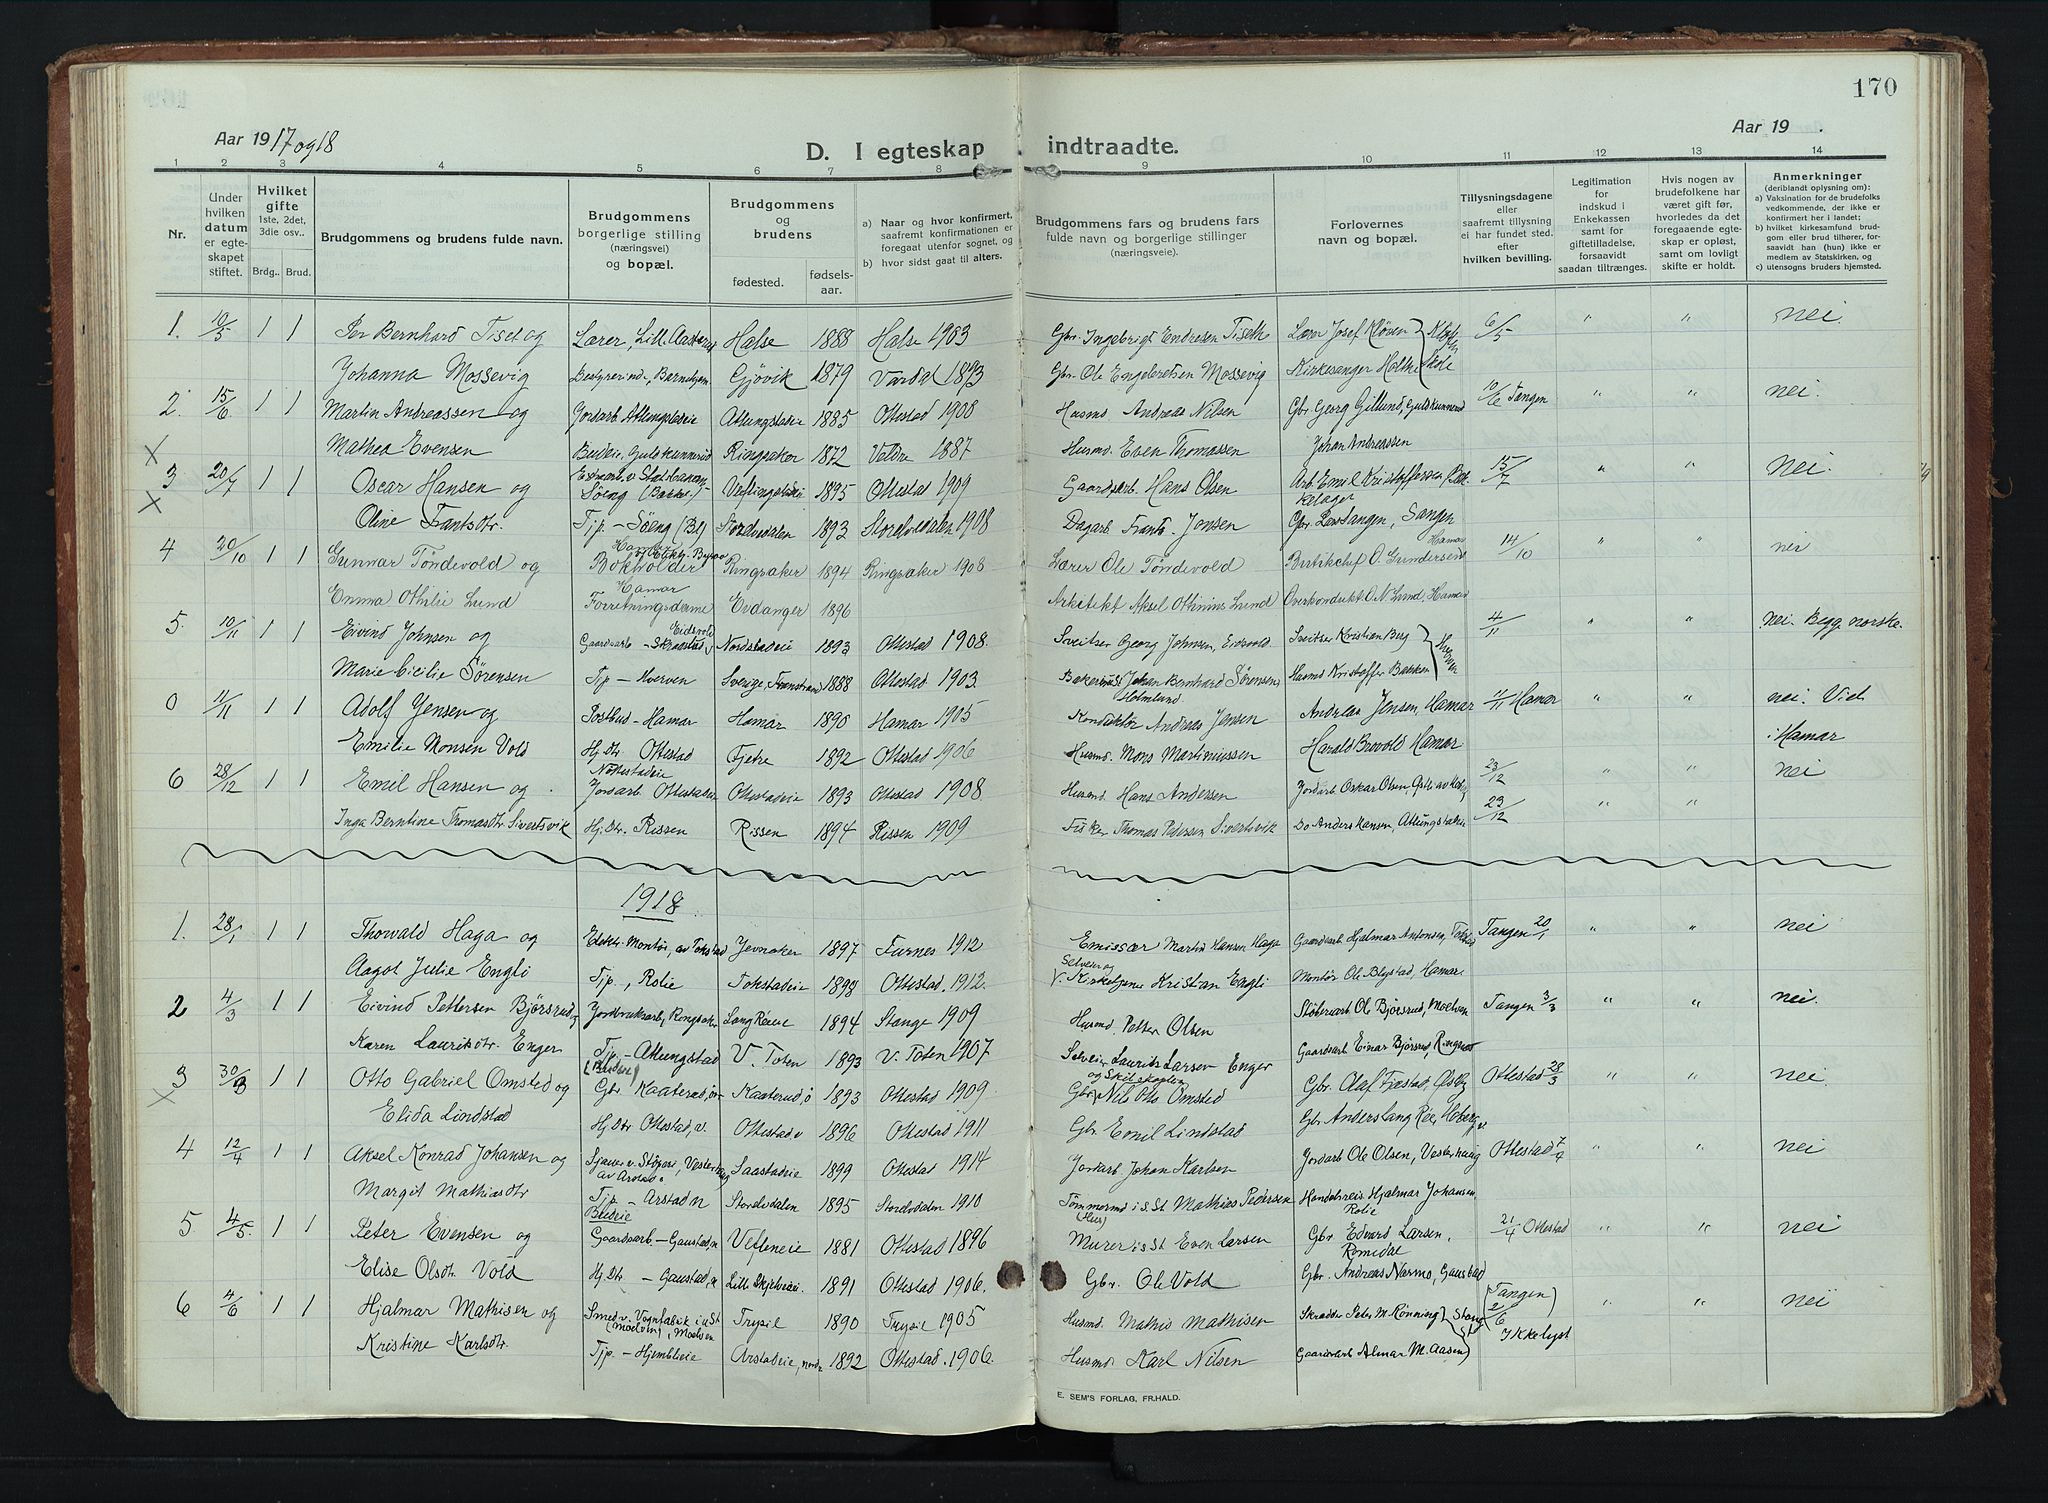 170
Aar 1917 og 18
D. I egteskap indtraadte.
Aar 19 .
1 2 3 4 5 6 7 8 9 10 11 12 13 14
Nr.
Under hvilken datum er egteskapet stiftet.
Hvilket gifte 1ste, 2det, 3die osv.. Brdg.. Brud.
Brudgommens og brudens fulde navn.
Brudgommens borgerlige stilling (næringsvei) og bopæl.
Brudgommens og brudens
fødested. fødsels-aar.
a) Naar og hvor konfirmert, saafremt konfirmationen er foregaat utenfor sognet, og
b) hvor sidst gaat til alters.
Brudgommens fars og brudens fars fulde navn og borgerlige stillinger (næringsveie).
Forlovernes navn og bopæl.
Tillysningsdagene eller saafremt tillysning ei har fundet sted. efter hvilken bevilling.
Legitimation for indskud i Enkekassen samt for giftetilladelse, forsaavidt saadan tiltrænges.
Hvis nogen av brudefolkene har været gift før, hvorledes da det foregaaende egteskap er opløst, samt om lovligt skifte er holdt.
Anmerkninger (deriblandt oplysning om): a) Vaksination for de brudefolks vedkommende, der ikke er konfirmert her i landet; b) hvilket kirkesamfund brudgom eller brud tilhører, forsaavidt han (hun) ikke er medlem av Statskirken, og c) utensogns bruders hjemsted.
1. 10/5 1 1 Per Bernhard Tiset og Lærer, Lill. Aasterud Halse 1888 Halse 1903 Gbr. Ingebrigt Endresen Tiseth Lærer Josef Kløven 6/5 " " nei.
Johanna Mossevig Bestyrerinde, Barnehjem Gjøvik 1879 Vardal 1893 Gbr. Ole Engebretsen Mossevig Kirkesanger Holthe
2. 15/6 1 1 Martin Andreassen og Jordarb. Atlungstadeie Atlungstadeie 1885 Ottestad 1908 Husmd. Andreas Nilsen Gbr Georg Gillund, Gulskunnerud 10/6 Tangen " " nei.
Mathea Evensen Budeie, Gulskunnerud Ringsaker 1872 Veldre 1887 Husmd. Even Thomassen Johan Andreassen
X 3 20/7 1 1 Oscar Hansen og Søeng (Bakke) 1895 Ottestad 1909 Gaardsarb. Hans Olsen Arb. Emil Kristoffersen Bækkelaget 15/7 " " nei.
X Oline Frantsdtr. Tjp. - Søeng (Bl) Storelvedalen 1893 Storelvedalen 1908 Dagarb. Frants Jonsen
4 20/10 1 1 Gunnar Tøndevold og Bokholder Hamar Ringsaker 1894 Ringsaker 1908 Lærer Ole Tøndevold Butikchef O. Gundersen Hamar 14/10 " " nei
Emma Othilie Lund Forretningsdame Hamar Eidanger 1896 Arkitekt Aksel Othinius Lund Overkondukt. O. N. Lund, Hamar
5. 10/11 1 1 Eivind Johnsen og Gaardsarb - Skraastad Eidsvold Nordstadeie 1893 Ottestad 1908. Sveitser Georg Johnsen, Eidsvold Sveitser Kristian Berg 4/11 " " nei. Begg norske.
Marie Cicilie Sørensen Tjp - Hverven Sverige, 1888 Ottestad 1903. Johan Bernhard Sørensen Husmd Kristoffer Bakken Hverven
0 11/11 1 1 Adolf Jensen og Postbud - Hamar Hamar 1890 Hamar 1905 Konduktør Andreas Jensen Andreas Jensen, Hamar 4/11 Hamar " " nei. Viet
Emilie Monsen Vold Hj.Dtr. Ottestad Tjetre 1892 Ottestad 1906 Husmd. Mons Martinussen Harald Brovold Hamar i Hamar
6 28/12 1 1 Emil Hansen og Jordarb Ottestadeie Ottestadeie 1893 Ottestad 1908. Husmd. Hans Andersen Jordarb Oskar Olsen, 23/12 " " nei
Inga Berntine Thomasdtr Sivertsvik Hj.Dtr. Rissen Rissen 1894 Rissen 1909 Fisker Thomas Pedersen Sivertsvik Do Anders Hansen, Atlungstadeie 23/12 " "
1918
1. 28/1 1 1 Thorvald Haga og Elektr. Montør, av Tokstad Jevnaker 1897 Furnes 1912 Emissær Martin Hansen Haga Gaardsarb. Hjalmar Antonsen, Tokstad Tangen 20/1 " " nei
Aagot Julie Engli Tjp., Rolie Tokstadeie 1898 Ottestad 1912. Selveier og Kirketjener Kristian Engli Montør Ole Blystad, Hamar
2 4/3 1 1 Eivind Pettersen Bjørsrud og Jordbruksarb, Ringsaker Lang Reeie 1894 Stange 1909 Husmd Petter Olsen Støberarb Ole Bjørsrud, Moelven Tangen 3/3 " " nei.
Karen Lauritsdtr. Enger Tjp. - Atlungstad (Budeie) V. Toten 1893 V. Toten 1907 Selveier Laurits Larsen Enger Gaardsarb Einar Bjørsrud, Ringsaker
3 30/3 1 1 Otto Gabriel Omsted og Gbr. Kaaterud, ø Kaaterud, ø 1893 Ottestad 1909 Gbr Nils Otto Omsted Gbr. Olaf Fjæstad, Ottestad 28/3 " " nei.
X Elida Lindstad Hj.Dtr Ottestad, v. Ottestad v 1896 Ottestad 1911 Gbr. Emil Lindstad Gbr Anders Lang Ree, Hoberg v
4 12/4 1 1 Aksel Konrad Johansen og Saastadeie 1899 Ottestad 1914 Jordarb Johan Karlsen Jordarb Ole Olsen, Vesterhaug Ottestad 7/4 " " nei
Margit Mathiasdtr Tjp - Arstad n Budeie Storelvdalen 1895 Storelvdalen 1910 Tømmermd i s. St Mathias Pedersen Handelsreis Hjalmar Johansen, Rolie
5 4/5. 1 1 Peter Evensen og Gaardsarb - Gaustad, n Vefleneie 1881 Ottestad 1896 Murer i s St Even Larsen Gbr Edvard Larsen, Romedal 21/4 Ottestad " " nei
Elise Olsdtr. Vold Hj.Dtr - Gaustad, n 1891 Ottestad 1906. Gbr. Ole Vold Gbr. Andreas Narmo, Gaustad
6 4/6 1 1 Hjalmar Mathisen og Smed v. Vognfabrik i u St (Moelven), Moelven Trysil 1890 Trysil 1905 Husmd. Mathis Mathisen Skrædder Peter M. Rønning Stange (Tangen) 2/6 " " nei
Kristine Karlsdtr. Tjp. - Hjemblieie Arstadeie, nordr 1892 Ottestad. 1906. Husmd Karl Nilsen Gaardsarb Almar M. Aasen Ikke lyst
E. SEM'S FORLAG, FR.HALD.